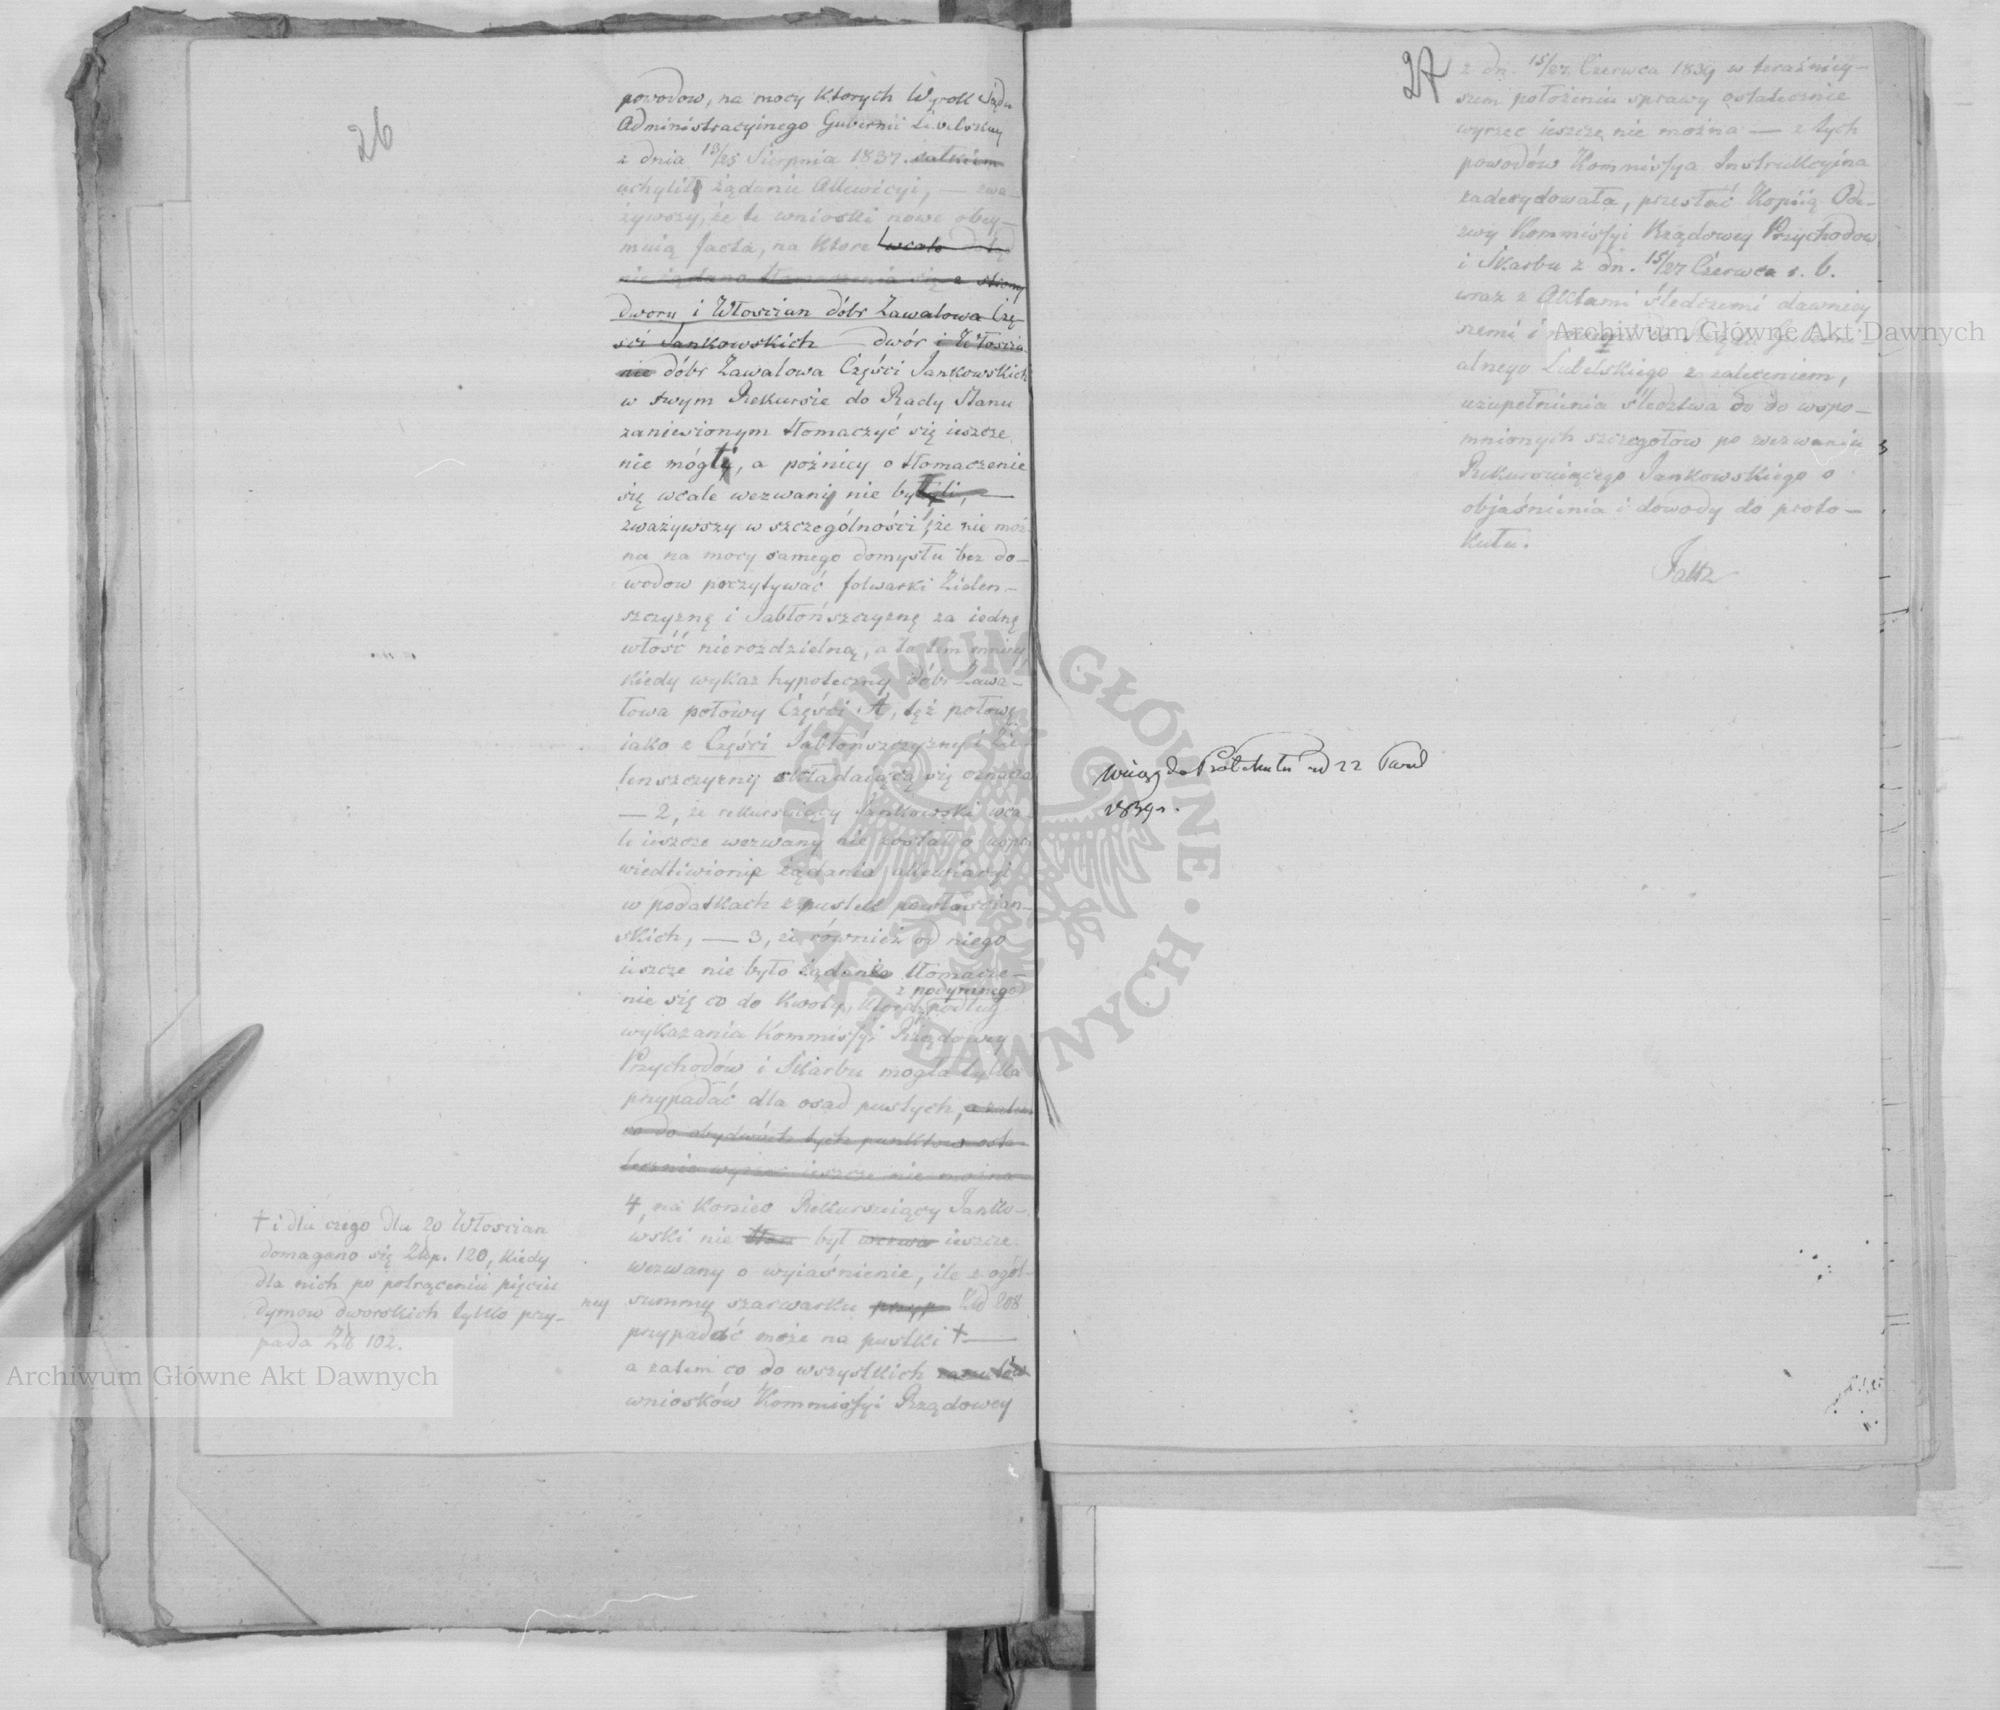 26
powodow, na mocy ktorych Wyrok Sądu
Administracyinego Gubernii Lubelskiey
z dnia 13/25 Sierpnia 1837.
uchylił żądanie Allewicyi, — zwa-
żywszy, że te wnioski nowe obey-
muią facta, na ktore wcale
nie żądano tłomaczenia się z strony
dworu i Włoscian dóbr Zawalowa Czę-
ści Jankowskich dwór i Włościa-
nie dóbr Zawalowa Części Jankowskich
w swym Rekursie do Rady Stanu
zaniesionym tłomaczyć się ieszcze
nie mógł, a poźniey o tłomaczenie
się wcale wezwany nie był, —
zważywszy w szczególności 1, że nie moż-
na na mocy samego domysłu bez do-
wodow poczytywać folwarki Zielen-
szczyznę i Jabłońszczyznę za iedną
włość nierozdzielną, a to tem mniey,
kiedy wykaz hypoteczny dóbr Zawa-
łowa połowy Części A, też połowę
iako z Części Jabłońszczyzny i Zie-
lenszczyzny składaiącą się oznacza
— 2, że rekursuiący Jankowski wca-
le ieszcze wezwany nie został o uspra-
wiedliwienie żądania allewiacyi
w podatkach z pustek powłościań-
skich, — 3, że również od niego
ieszcze nie było żądane tłomacze-
nie się co do kwoty, z podymnego
podług
wykazania Kommissyi Rządowey
Przychodów i Skarbu mogła tylko
przypadać dla osad pustych, a zatem
co do obydwóch tych punktow osta-
tecznie wyrzec ieszcze nie można
4, na koniec Rekursuiący Janko-
wski nie był ieszcze
wezwany o wyiaśnienie, ile z ogól-
ney summy szarwarku przyp Zł 208
przypadać może na pustki † —
a zatem co do wszystkich
wniosków Kommissyi Rządowey
† i dla czego dla 20 Włoscian
domagano się Złp. 120, kiedy
dla nich po potrąceniu pięciu
dymow dworskich tylko przy-
pada Zł 102.
27
z dn. 15/27 Czerwca 1839 w teraźniey-
szem położeniu sprawy ostatecznie
wyrzec ieszcze nie można — z tych
powodów Kommissya Instrukcyina
zadecydowała, przesłać Kopiią Ode-
zwy Kommissyi Rządowey Przychodow
i Skarbu z dn. 15/27 Czerwca r. b.
wraz z Aktami śledczemi dawniey-
szemi i do Rządu Guberni-
alnego Lubelskiego z zaleceniem,
uzupełnienia śledztwa co do wspo-
mnionych szczegołow po wezwaniu
Rekursuiącego Jankowskiego o
objaśnienia i dowody do proto-
kułu.
Faltz
Wciąg do Protokułu od 22 Pazd
1839 r.
Archiwum Główne Akt Dawnych
Archiwum Główne Akt Dawnych
ARCHIWUM GŁÓWNE • AKT DAWNYCH •